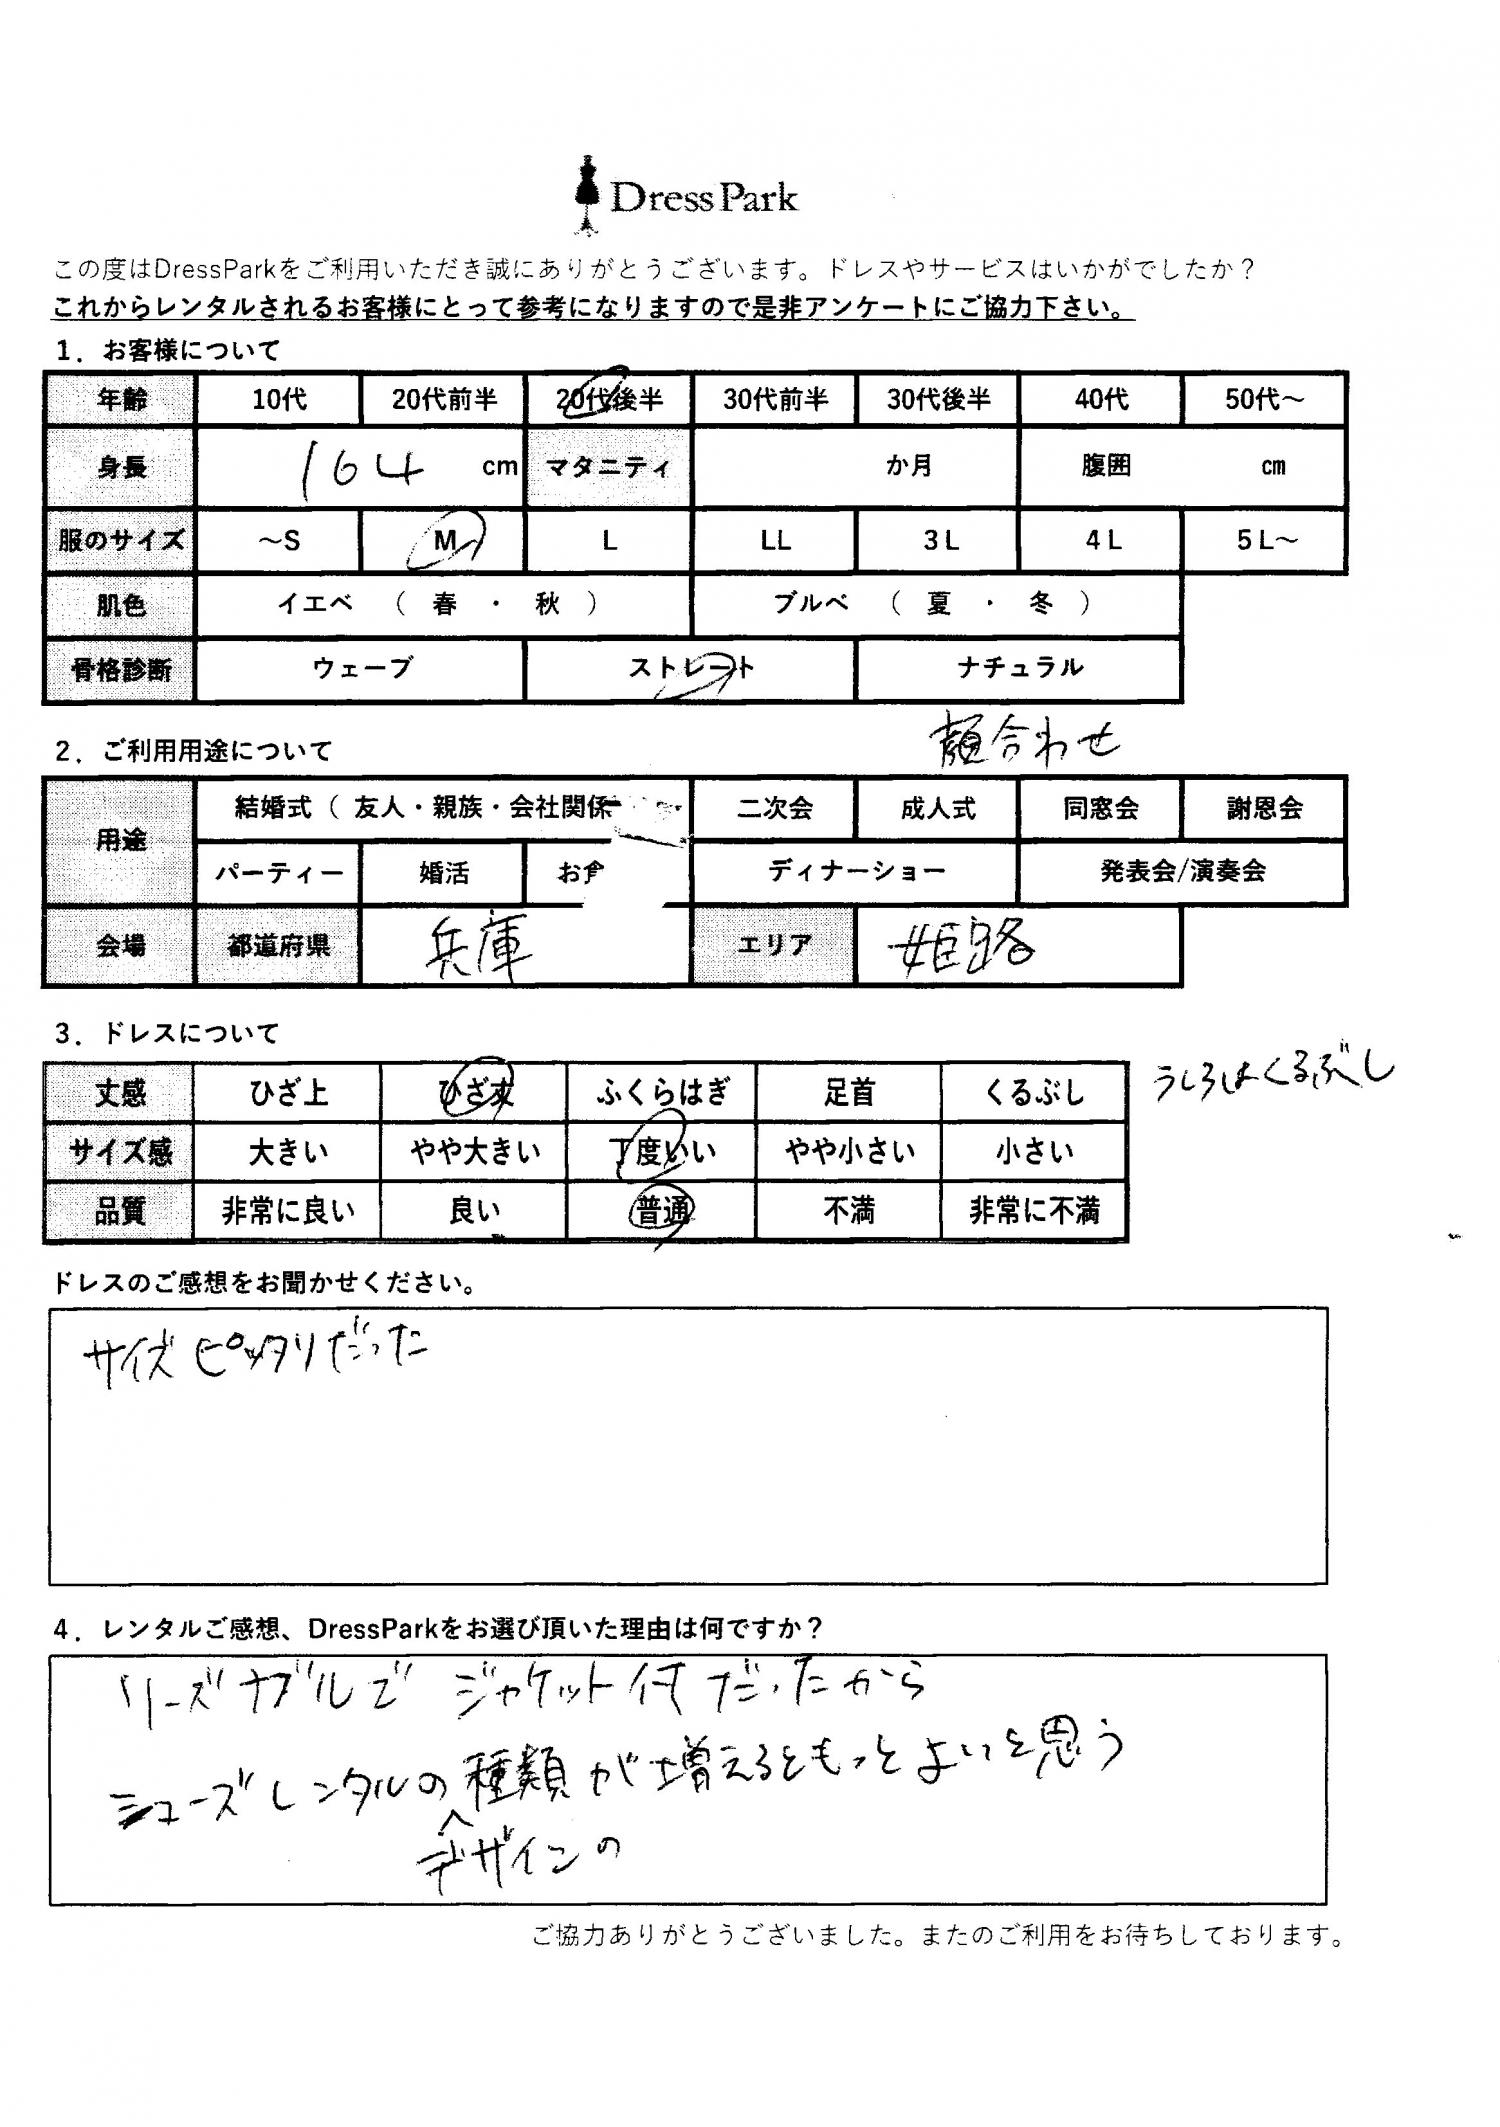 DressPark
この度はDressParkをご利用いただき誠にありがとうございます。ドレスやサービスはいかがでしたか？
これからレンタルされるお客様にとって参考になりますので是非アンケートにご協力下さい。
1．お客様について
年齢 10代 20代前半 20代後半 30代前半 30代後半 40代 50代～
身長 164 cm マタニティ か月 腹囲 cm
服のサイズ ～S M L LL 3L 4L 5L～
肌色 イエベ （ 春 ・ 秋 ） ブルベ （ 夏 ・ 冬 ）
骨格診断 ウェーブ ストレート ナチュラル
顔合わせ
2．ご利用用途について
用途 結婚式（ 友人・親族・会社関係 二次会 成人式 同窓会 謝恩会
パーティー 婚活 お食 ディナーショー 発表会/演奏会
会場 都道府県 兵庫 エリア 姫路
3．ドレスについて
丈感 ひざ上 ひざ丈 ふくらはぎ 足首 くるぶし うしろはくるぶし
サイズ感 大きい やや大きい 丁度いい やや小さい 小さい
品質 非常に良い 良い 普通 不満 非常に不満
ドレスのご感想をお聞かせください。
サイズピッタリだった
4．レンタルご感想、DressParkをお選び頂いた理由は何ですか？
リーズナブルで ジャケット付だったから
シューズレンタルの種類が増えるともっとよいと思う
デザインの
ご協力ありがとうございました。またのご利用をお待ちしております。